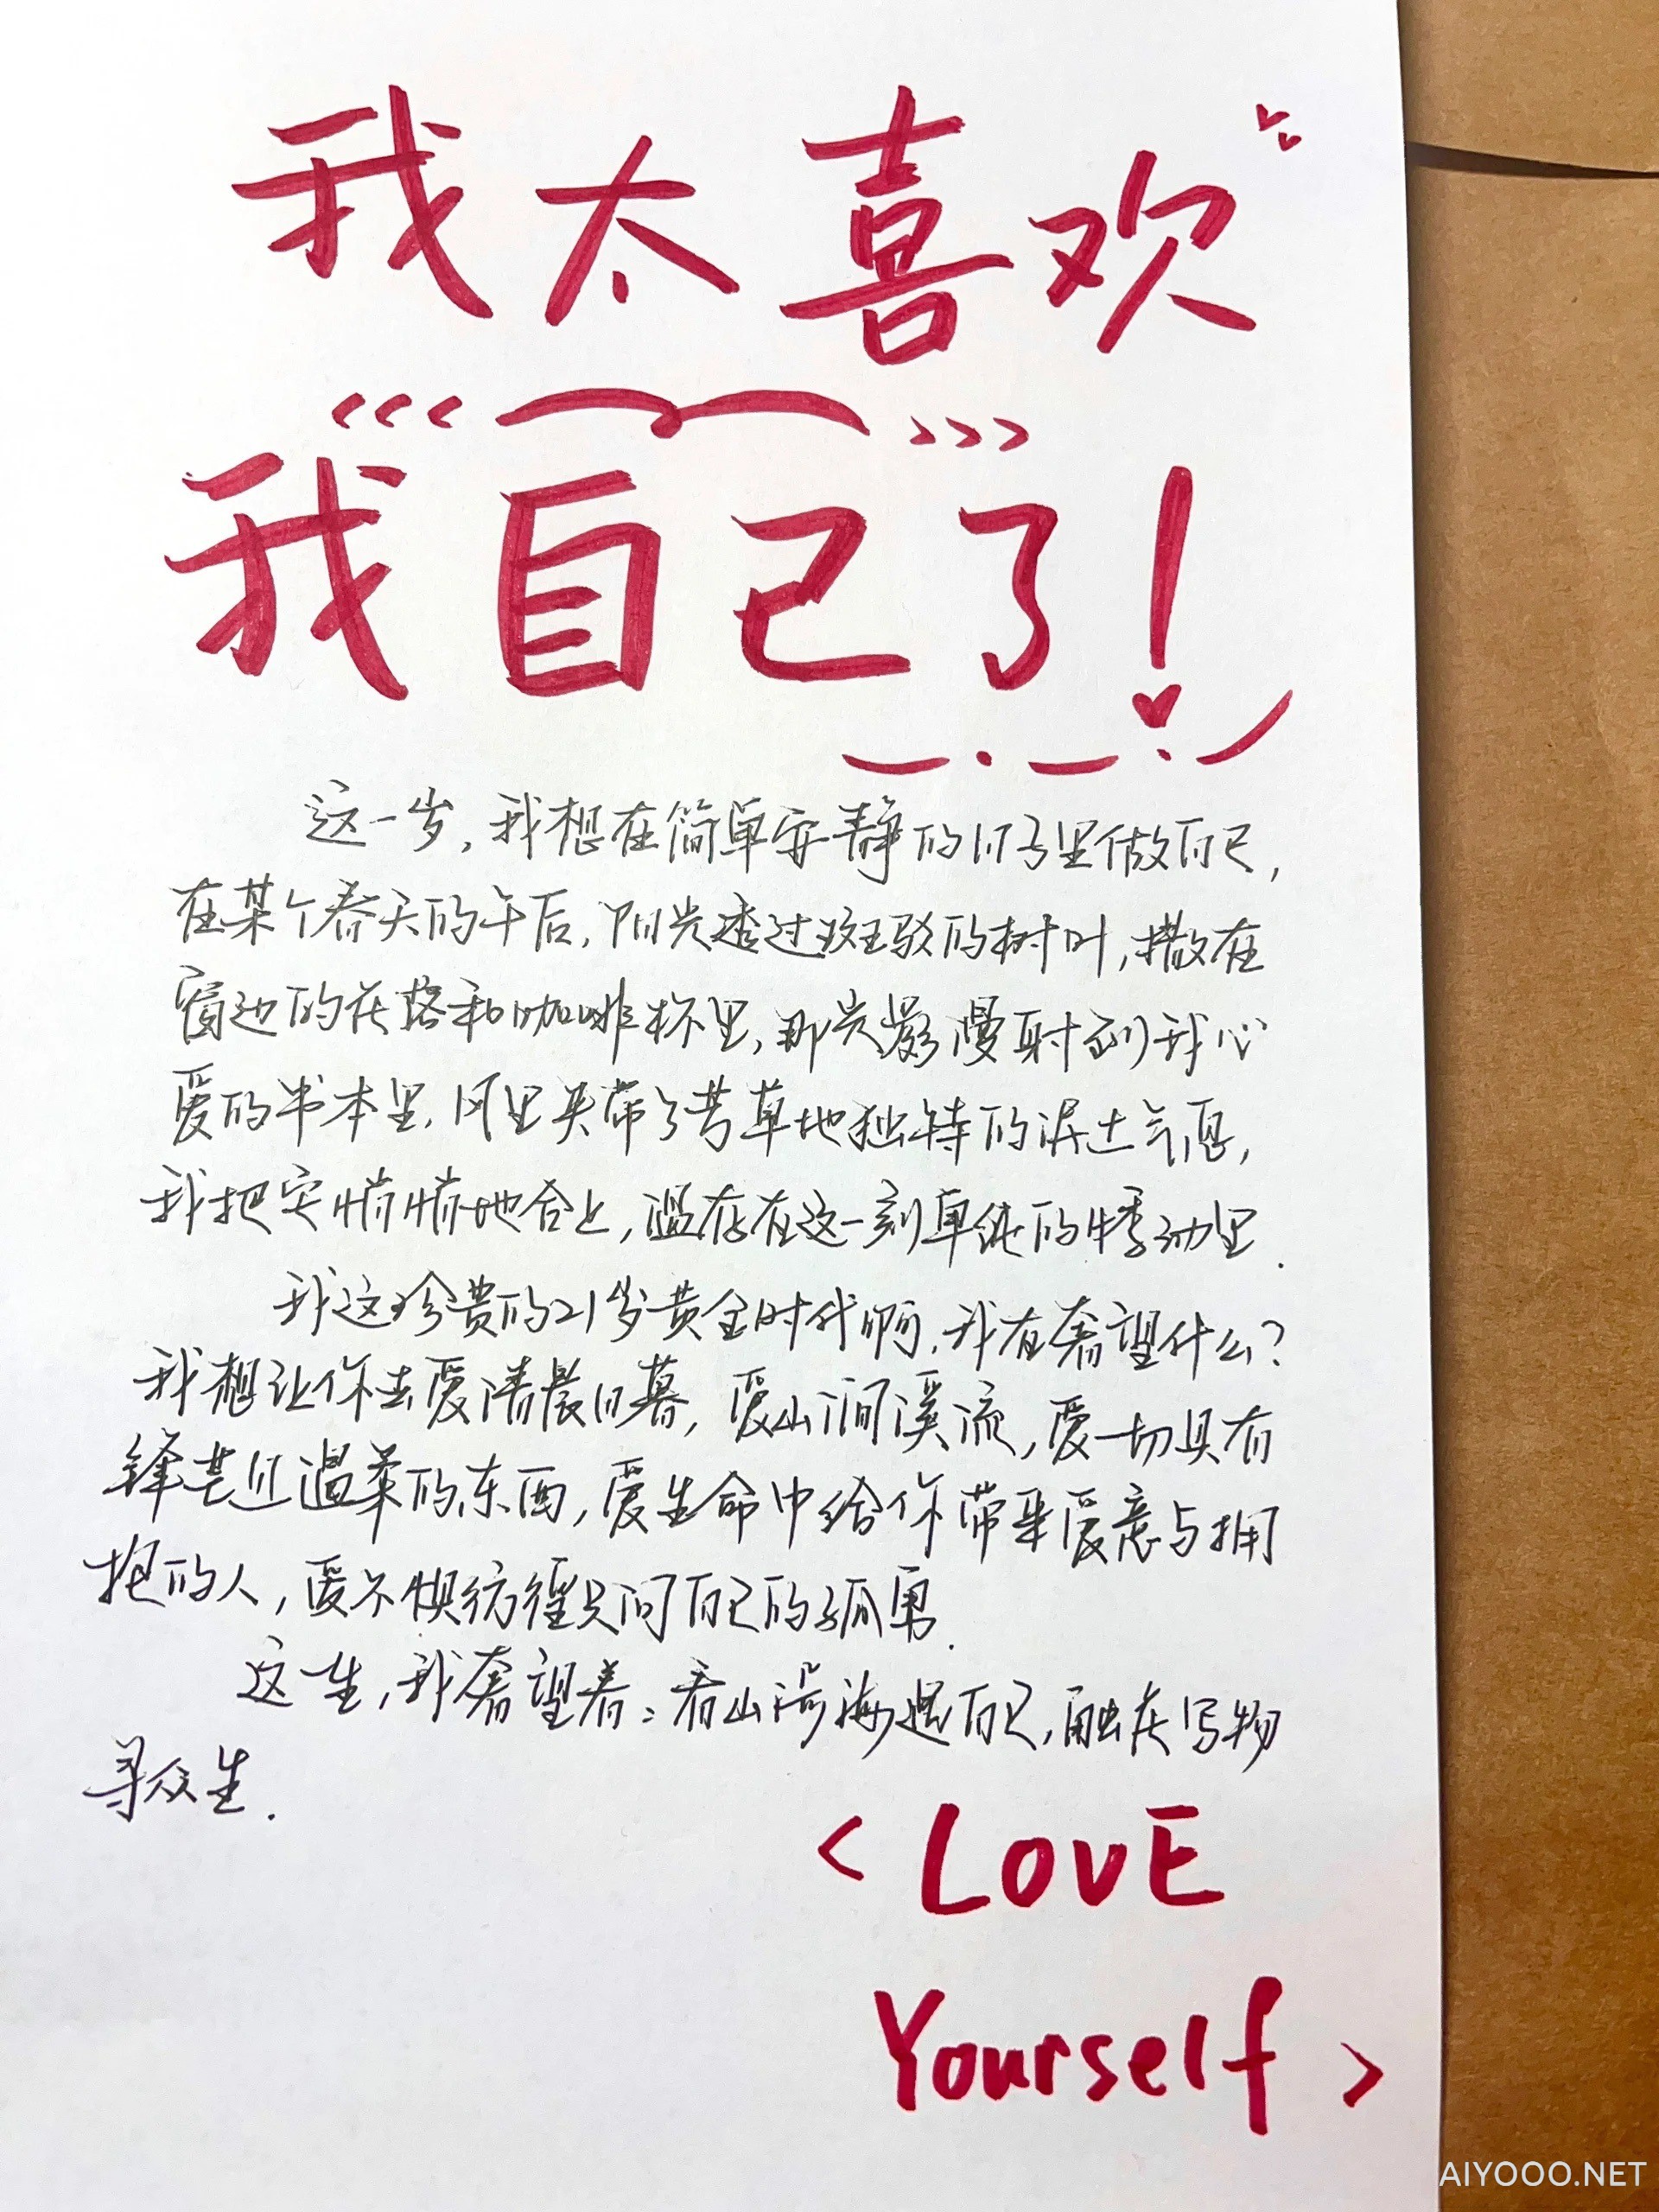 我太喜欢
我自己了!
这一岁,我想在简单安静的日子里做自己,
在某个春天的午后,阳光透过斑驳的树叶,撒在
窗边的花苞和咖啡杯里,那光影漫射到我心
爱的书本里.风里夹带了青草地独特的泥土气息,
我把它悄悄地合上,温存在这一刻单纯的悸动里.
我这珍贵的21岁黄金时代啊,我有奢望什么?
我想让你去爱清晨日暮,爱山涧溪流,爱一切具有
锋芒且温柔的东西,爱生命中给你带来爱意与拥
抱的人,爱不惧彷徨只问自己的孤勇.
这一生,我奢望着:看山海遇自己,融于万物
寻众生.
<LOVE
Yourself>
AIYOOO.NET